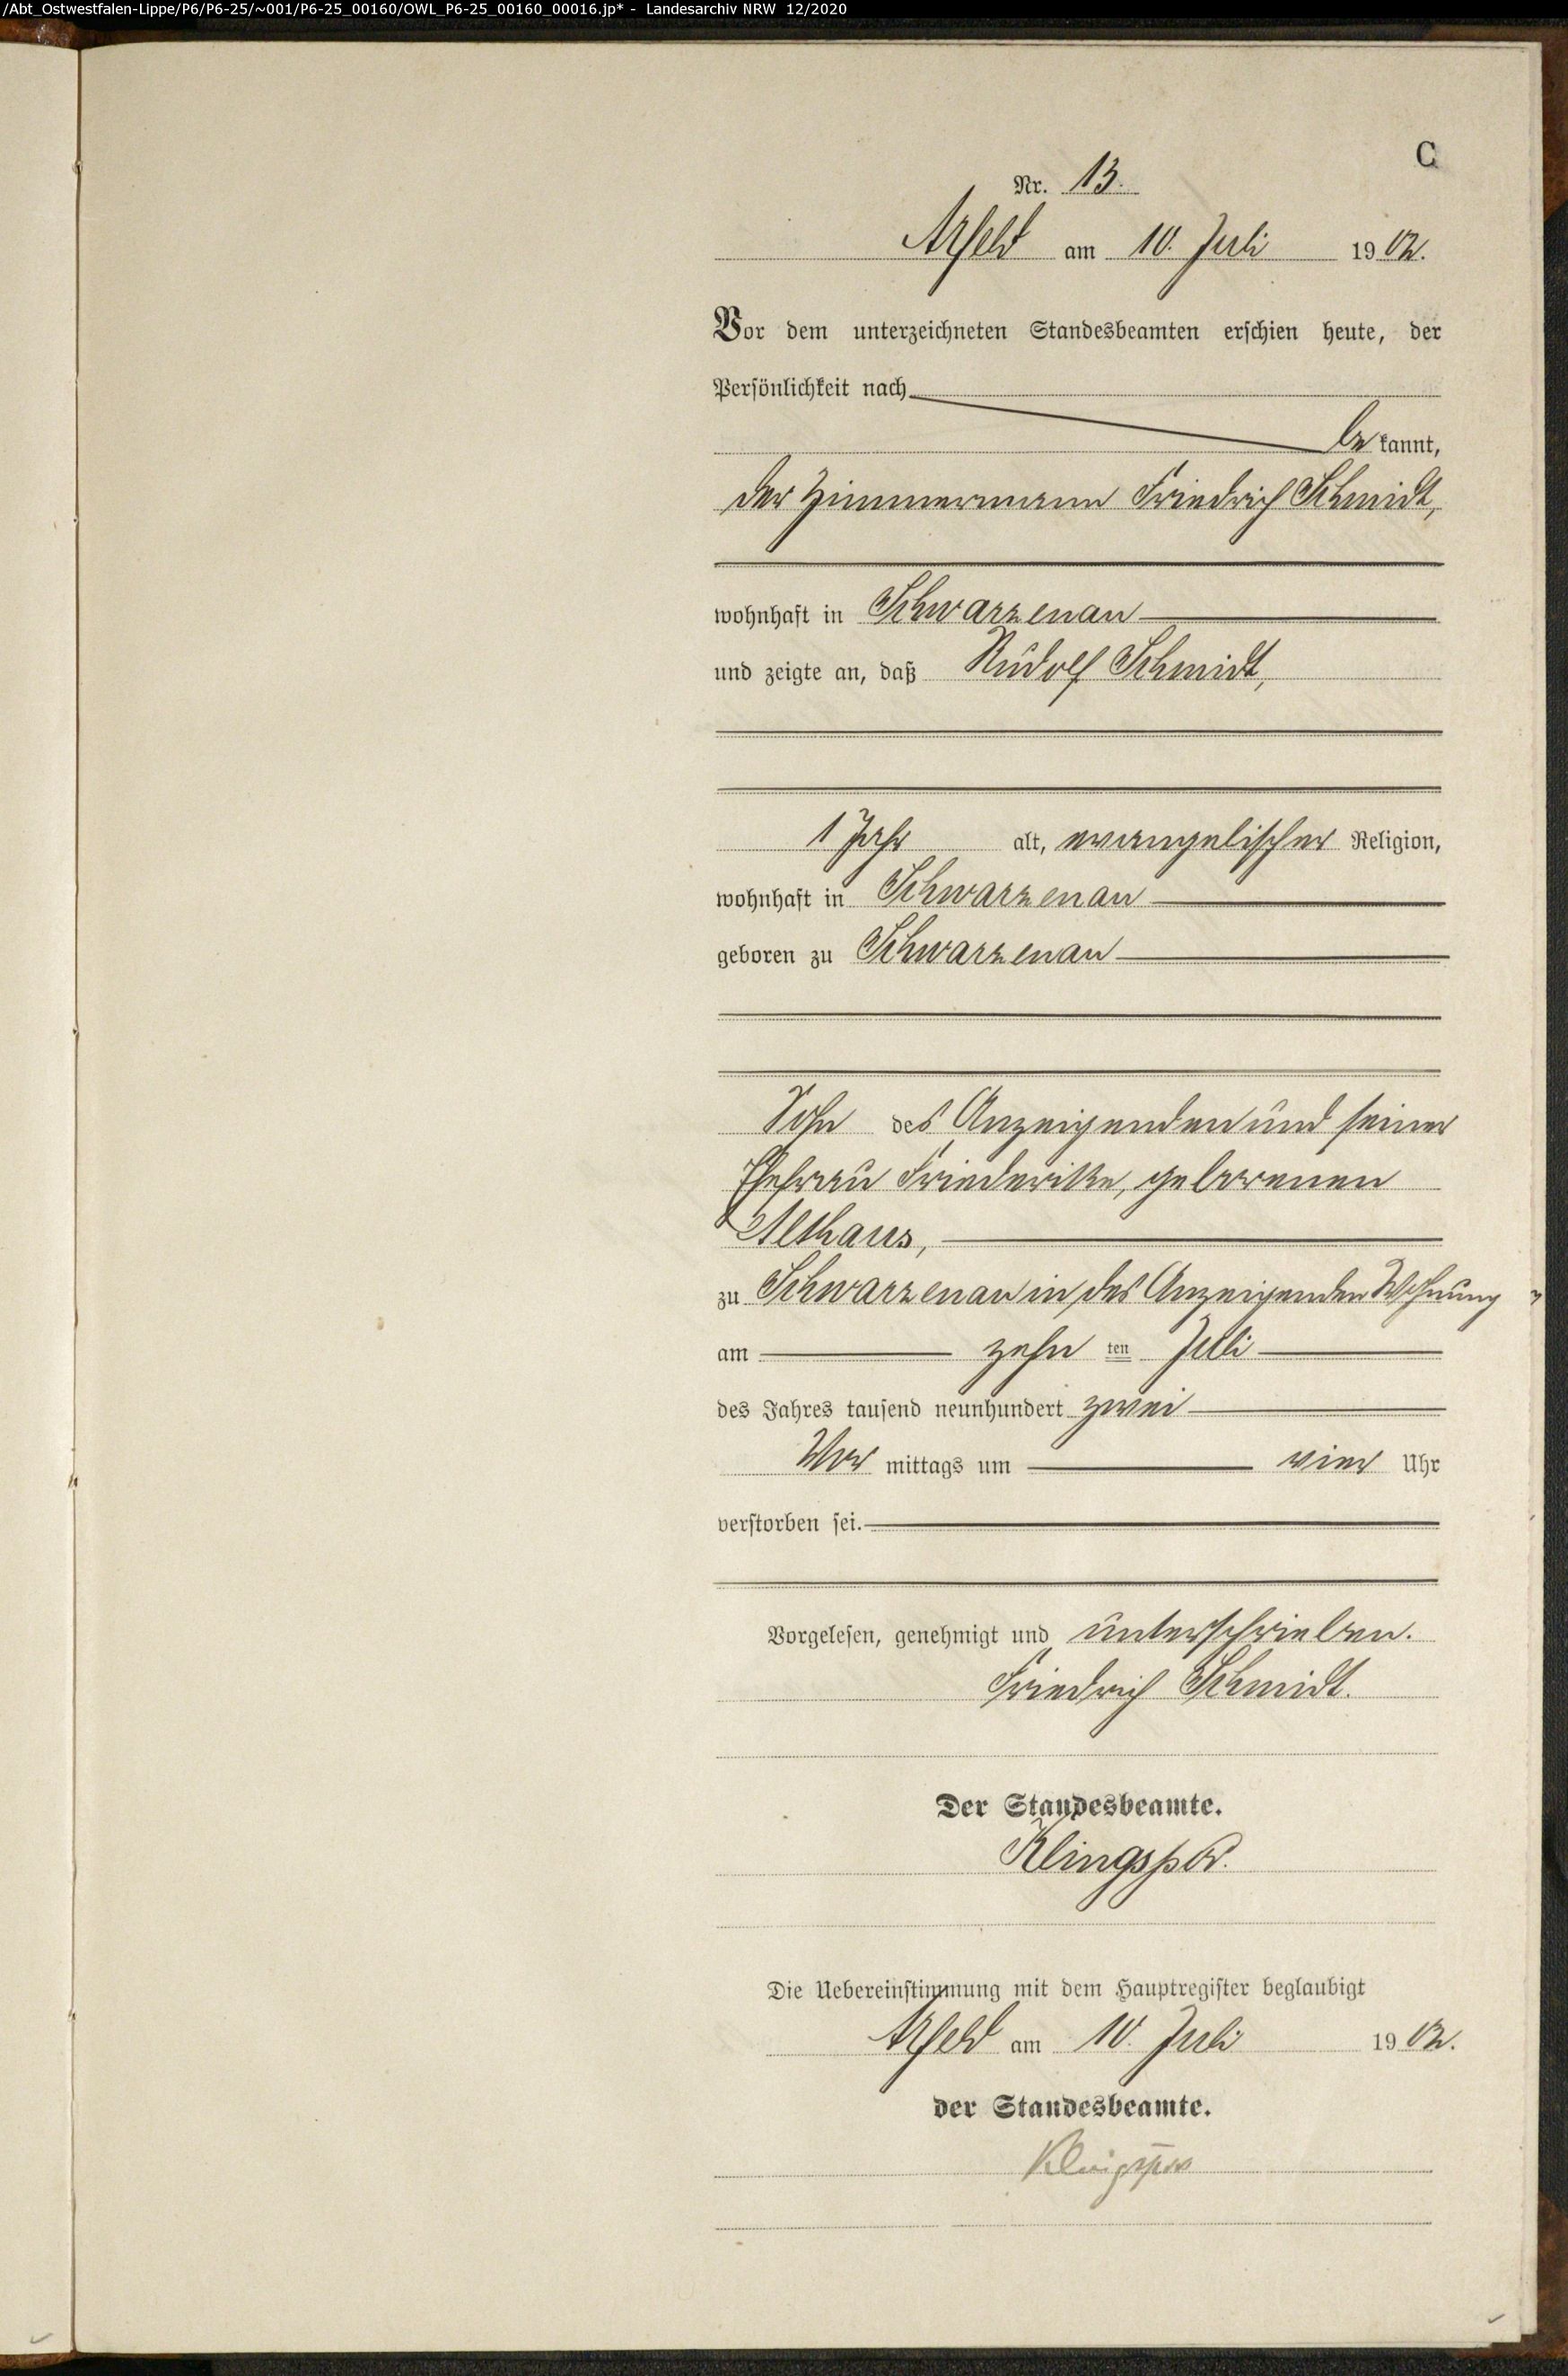 /Abt_Ostwestfalen-Lippe/P6/P6-25/~001/P6-25_00160/OWL_P6-25_00160_00016.jp* - Landesarchiv NRW 12/2020
C
Nr. 13.
Arfeld am 10. Juli 1902.
Vor dem unterzeichneten Standesbeamten erschien heute, der
Persönlichkeit nach
be kannt,
der Zimmermann Friedrich Schmidt,
wohnhaft in Schwarzenau
und zeigte an, daß Rudolf Schmidt,
1 Jahr alt, evangelischer Religion,
wohnhaft in Schwarzenau
geboren zu Schwarzenau
Sohn des Anzeigenden und seiner
Ehefrau Friederike, geborenen
Althaus,
zu Schwarzenau in des Anzeigenden Wohnung
am zehn ten Juli
des Jahres tausend neunhundert zwei
Vor mittags um vier Uhr
verstorben sei.
Vorgelesen, genehmigt und unterschrieben.
Friedrich Schmidt.
Der Standesbeamte.
Klingspor.
Die Uebereinstimmung mit dem Hauptregister beglaubigt
Arfeld am 10. Juli 1902.
der Standesbeamte.
Klingspor